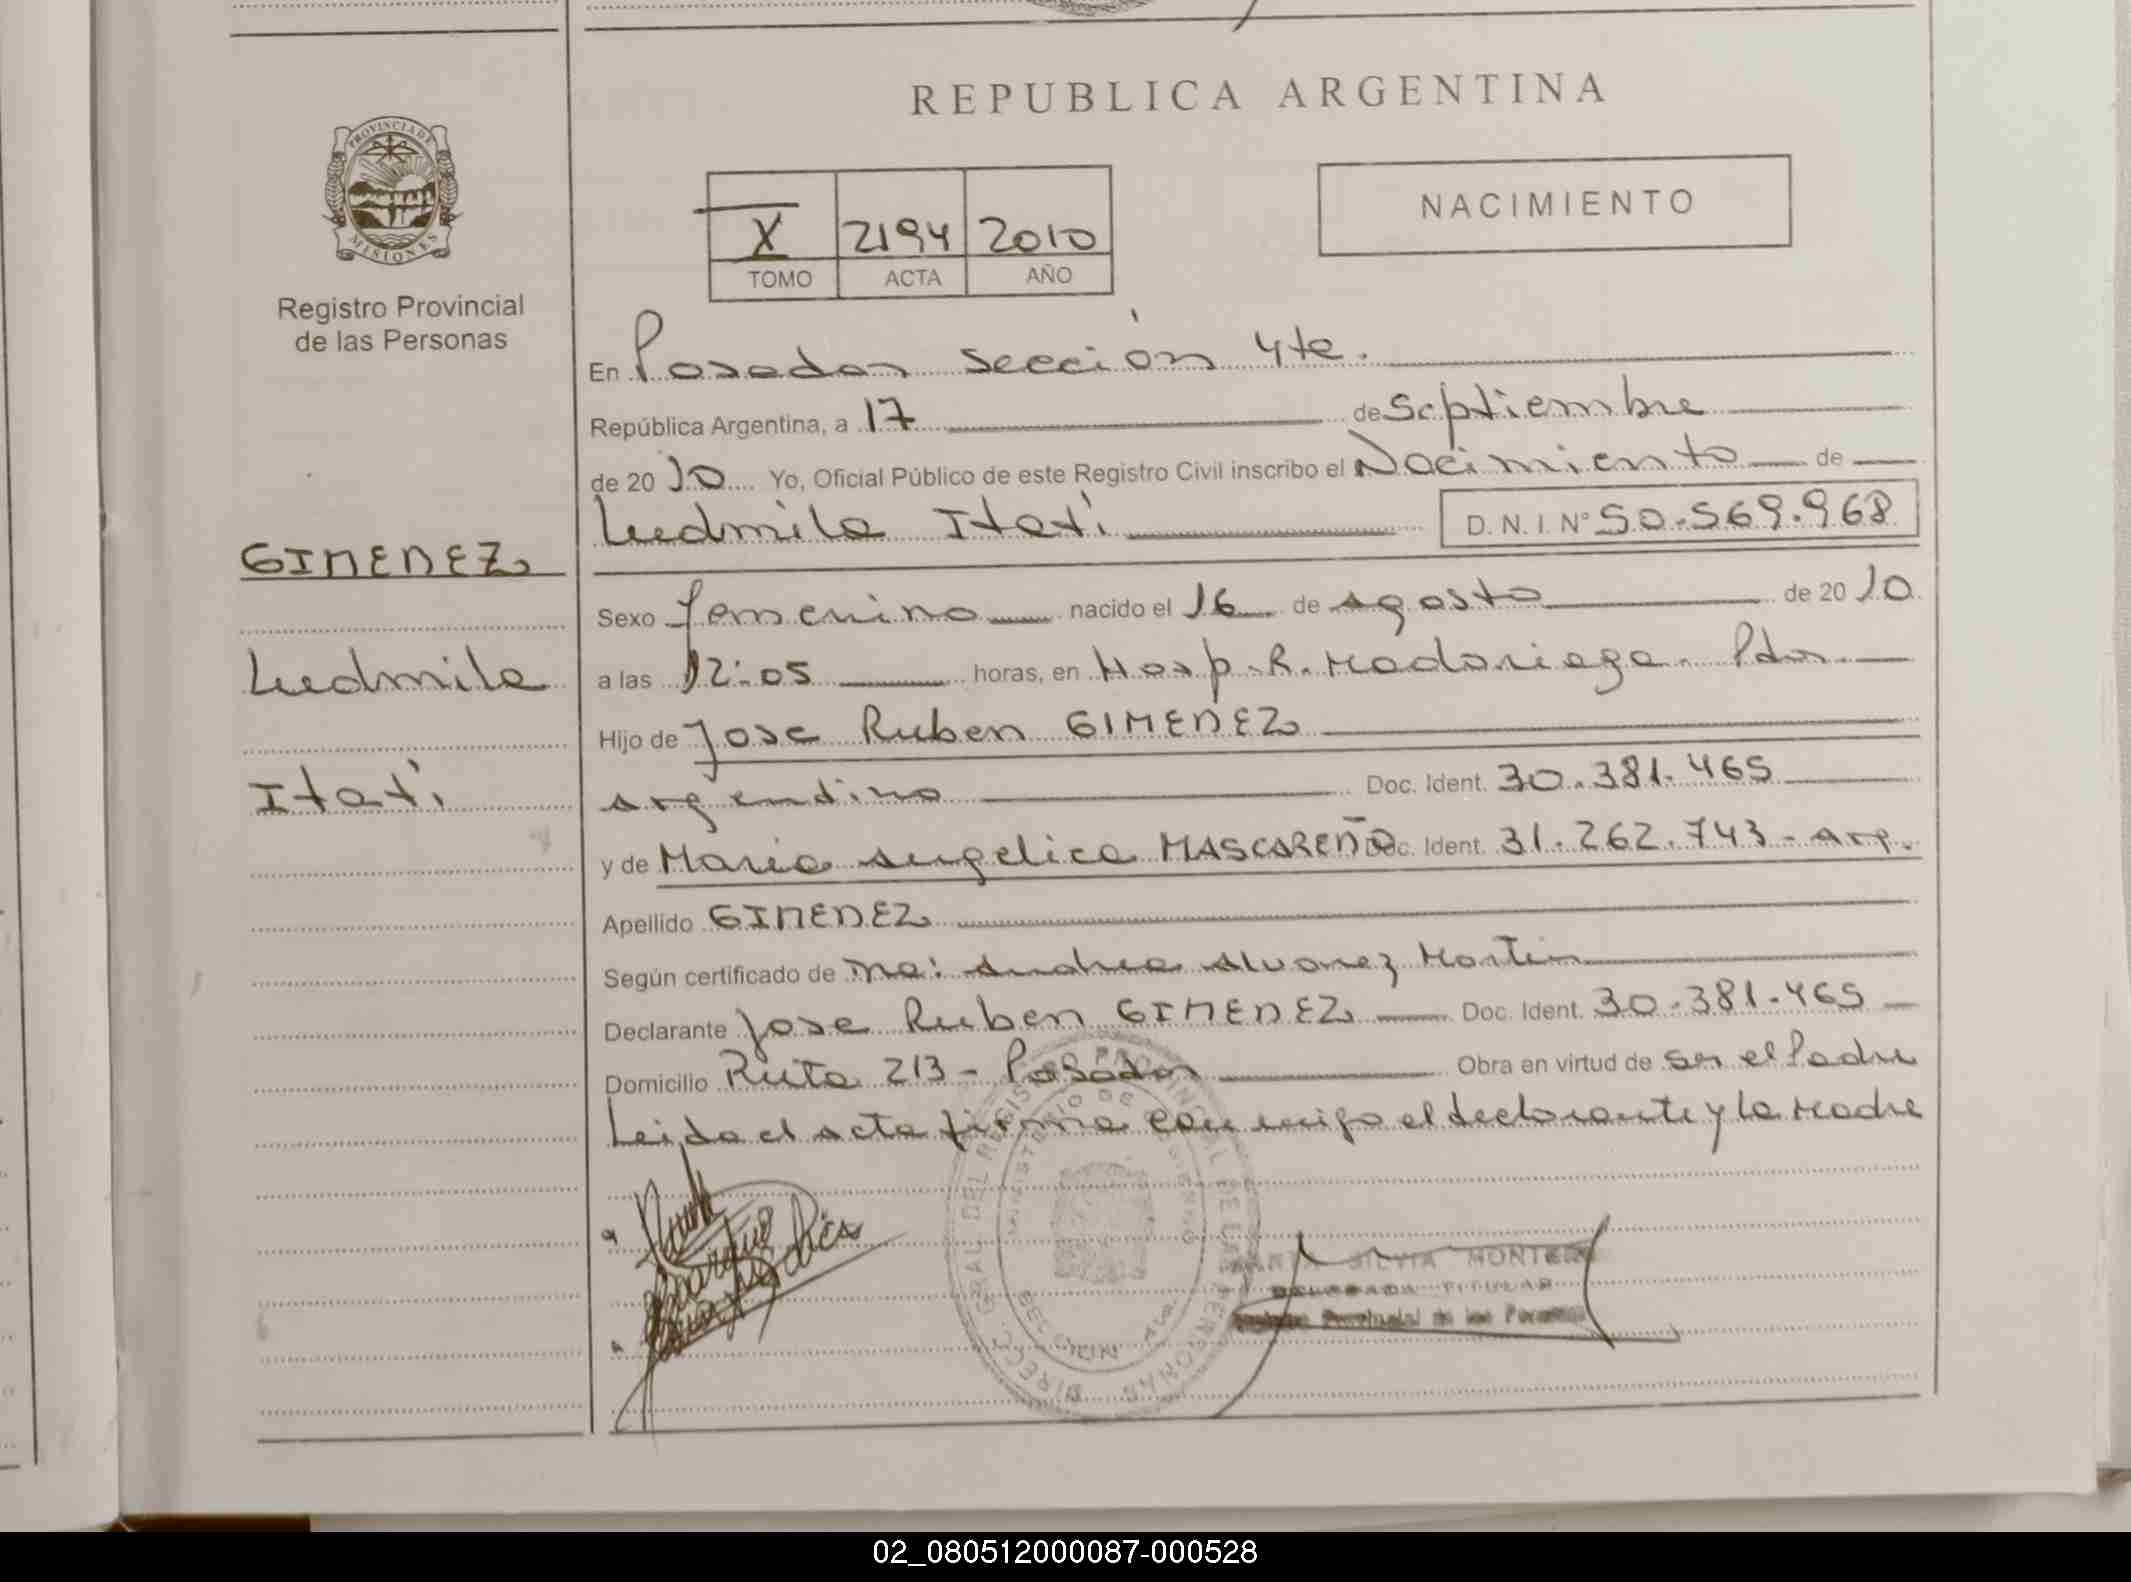 REPUBLICA ARGENTINA
PROVINCIA DE
MISIONES
Registro Provincial
de las Personas
NACIMIENTO
X 2194 2010
TOMO ACTA AÑO
En Posadas sección 4ta.
República Argentina, a 17 de Septiembre
de 2010 Yo, Oficial Público de este Registro Civil inscribo el Nacimiento de
Ludmila Itatí D. N. I. Nº 50.569.968
GIMENEZ
Ludmila
Itatí
Sexo femenino nacido el 16 de Agosto de 2010
a las 12:05 horas, en Hosp. R. Madariaga. Pdas.
Hijo de Jose Ruben GIMENEZ
Argentino Doc. Ident. 30.381.465
y de Maria Angelica MASCAREÑO Doc. Ident. 31.262.743 - Arg.
Apellido GIMENEZ
Según certificado de Andrea Alvarez Martin
Declarante Jose Ruben GIMENEZ Doc. Ident. 30.381.465
Domicilio Ruta 213 - Posadas Obra en virtud de ser el Padre
Leida el acta firma conmigo el declarante y la Madre
DIRECC. GRAL. DEL REGISTRO PROVINCIAL DE LAS PERSONAS
MINISTERIO DE GOBIERNO
SILVIA MONTE
DELEGADA TITULAR
Registro Provincial de las Personas
02_080512000087-000528